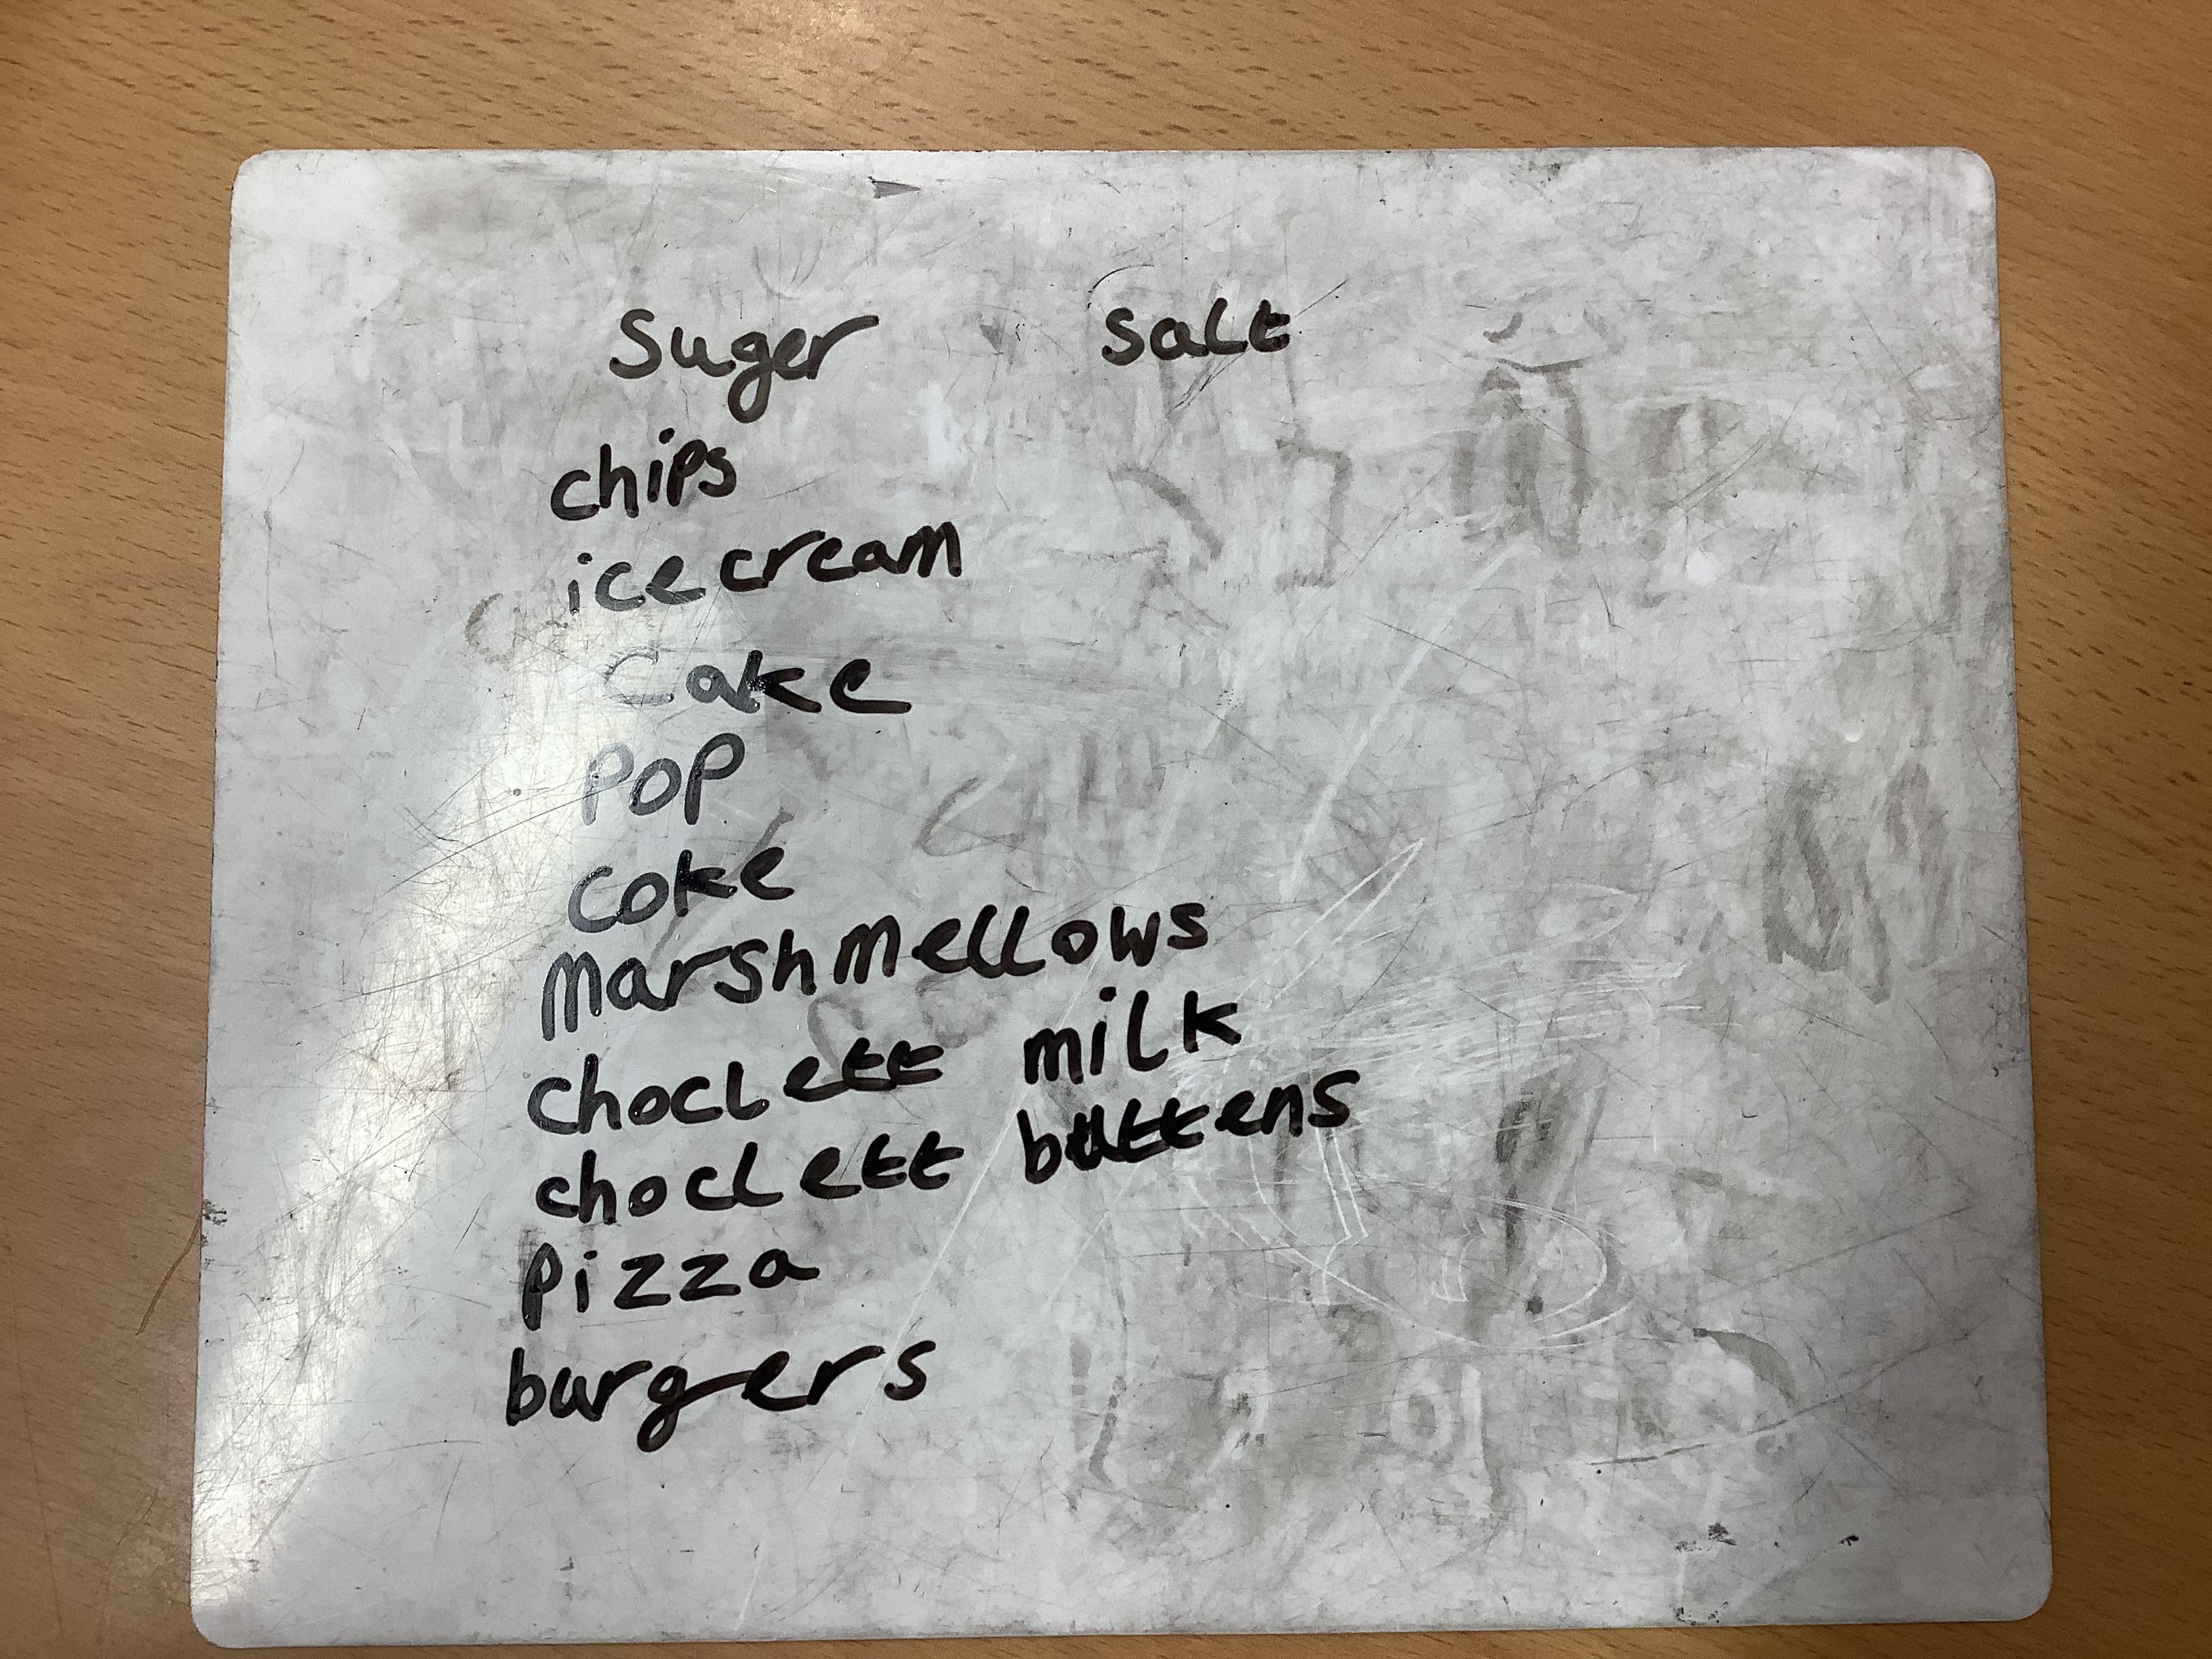 Suger salt
chips
ice cream
Cake
POP
coke
Marshmellows
choclett milk
choclett buttens
pizza
burgers